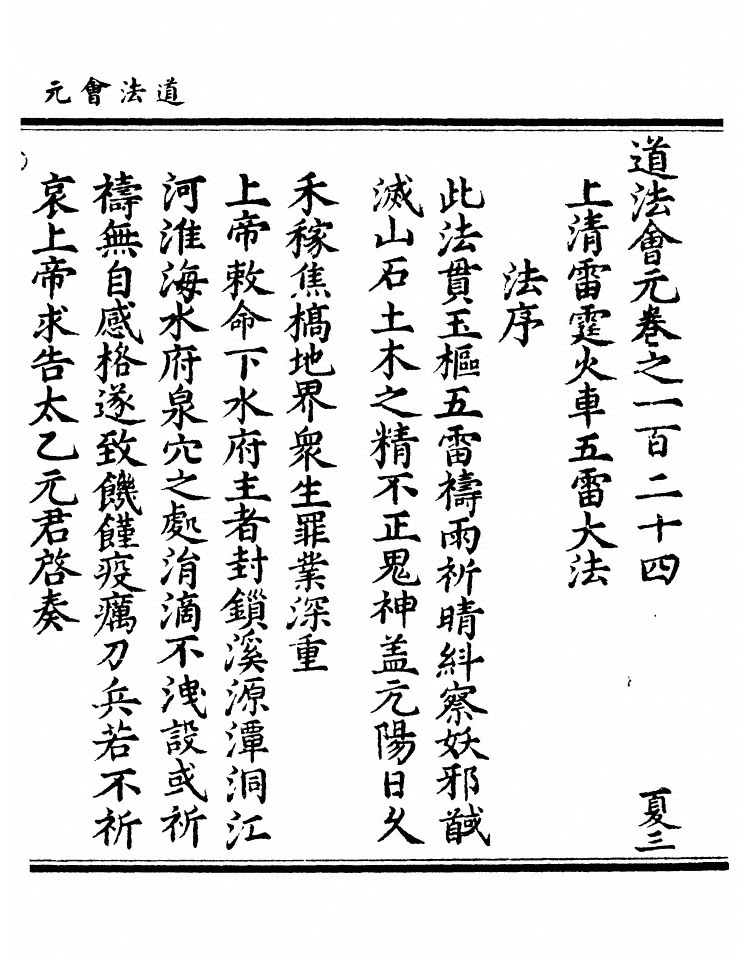 道法會元
道法會元卷之一百二十四
夏三
上清雷霆火車五雷大法
法序
此法貫玉樞五雷禱雨祈晴糾察妖邪馘
滅山石土木之精不正鬼神盖亢陽日久
禾稼焦槁地界衆生罪業深重
上帝敕命下水府主者封鎖溪源潭洞江
河淮海水府泉穴之處涓滴不洩設或祈
禱無自感格遂致饑饉疫癘刀兵若不祈
哀上帝求告太乙元君啓奏